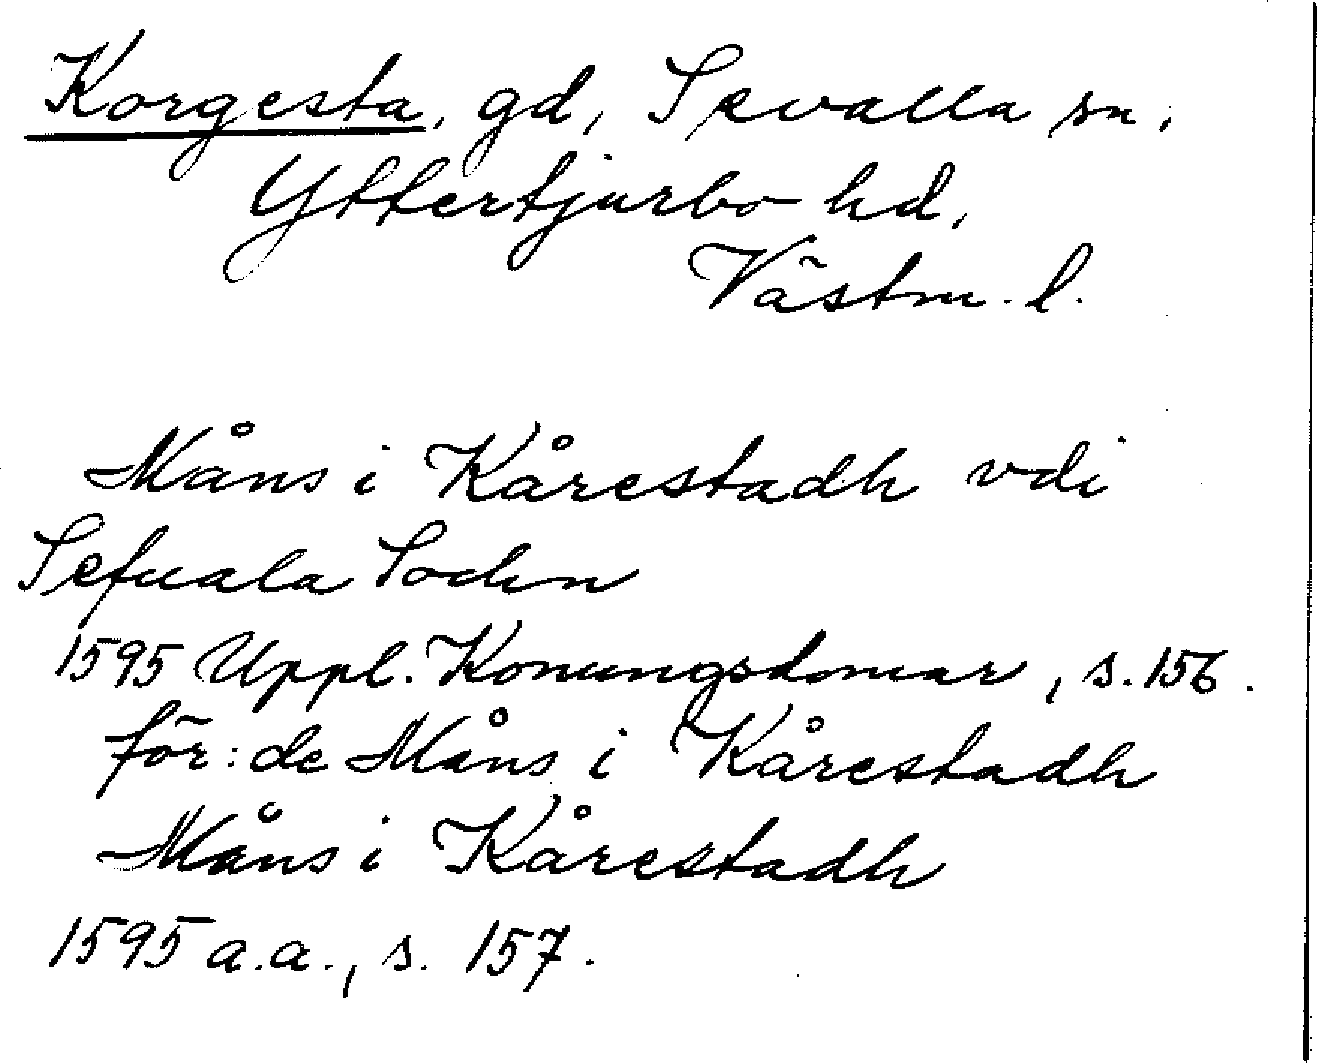 Korgesta, gd, Sevalla sn,
Yttertjurbo hd,
Västm. l.
Måns i Kårestadh vdi
Sefuala Sochn
1595 Uppl. Konungsdomar, s. 156.
för: de Måns i Kårestadh
Måns i Kårestadh
1595 a.a., s. 157.